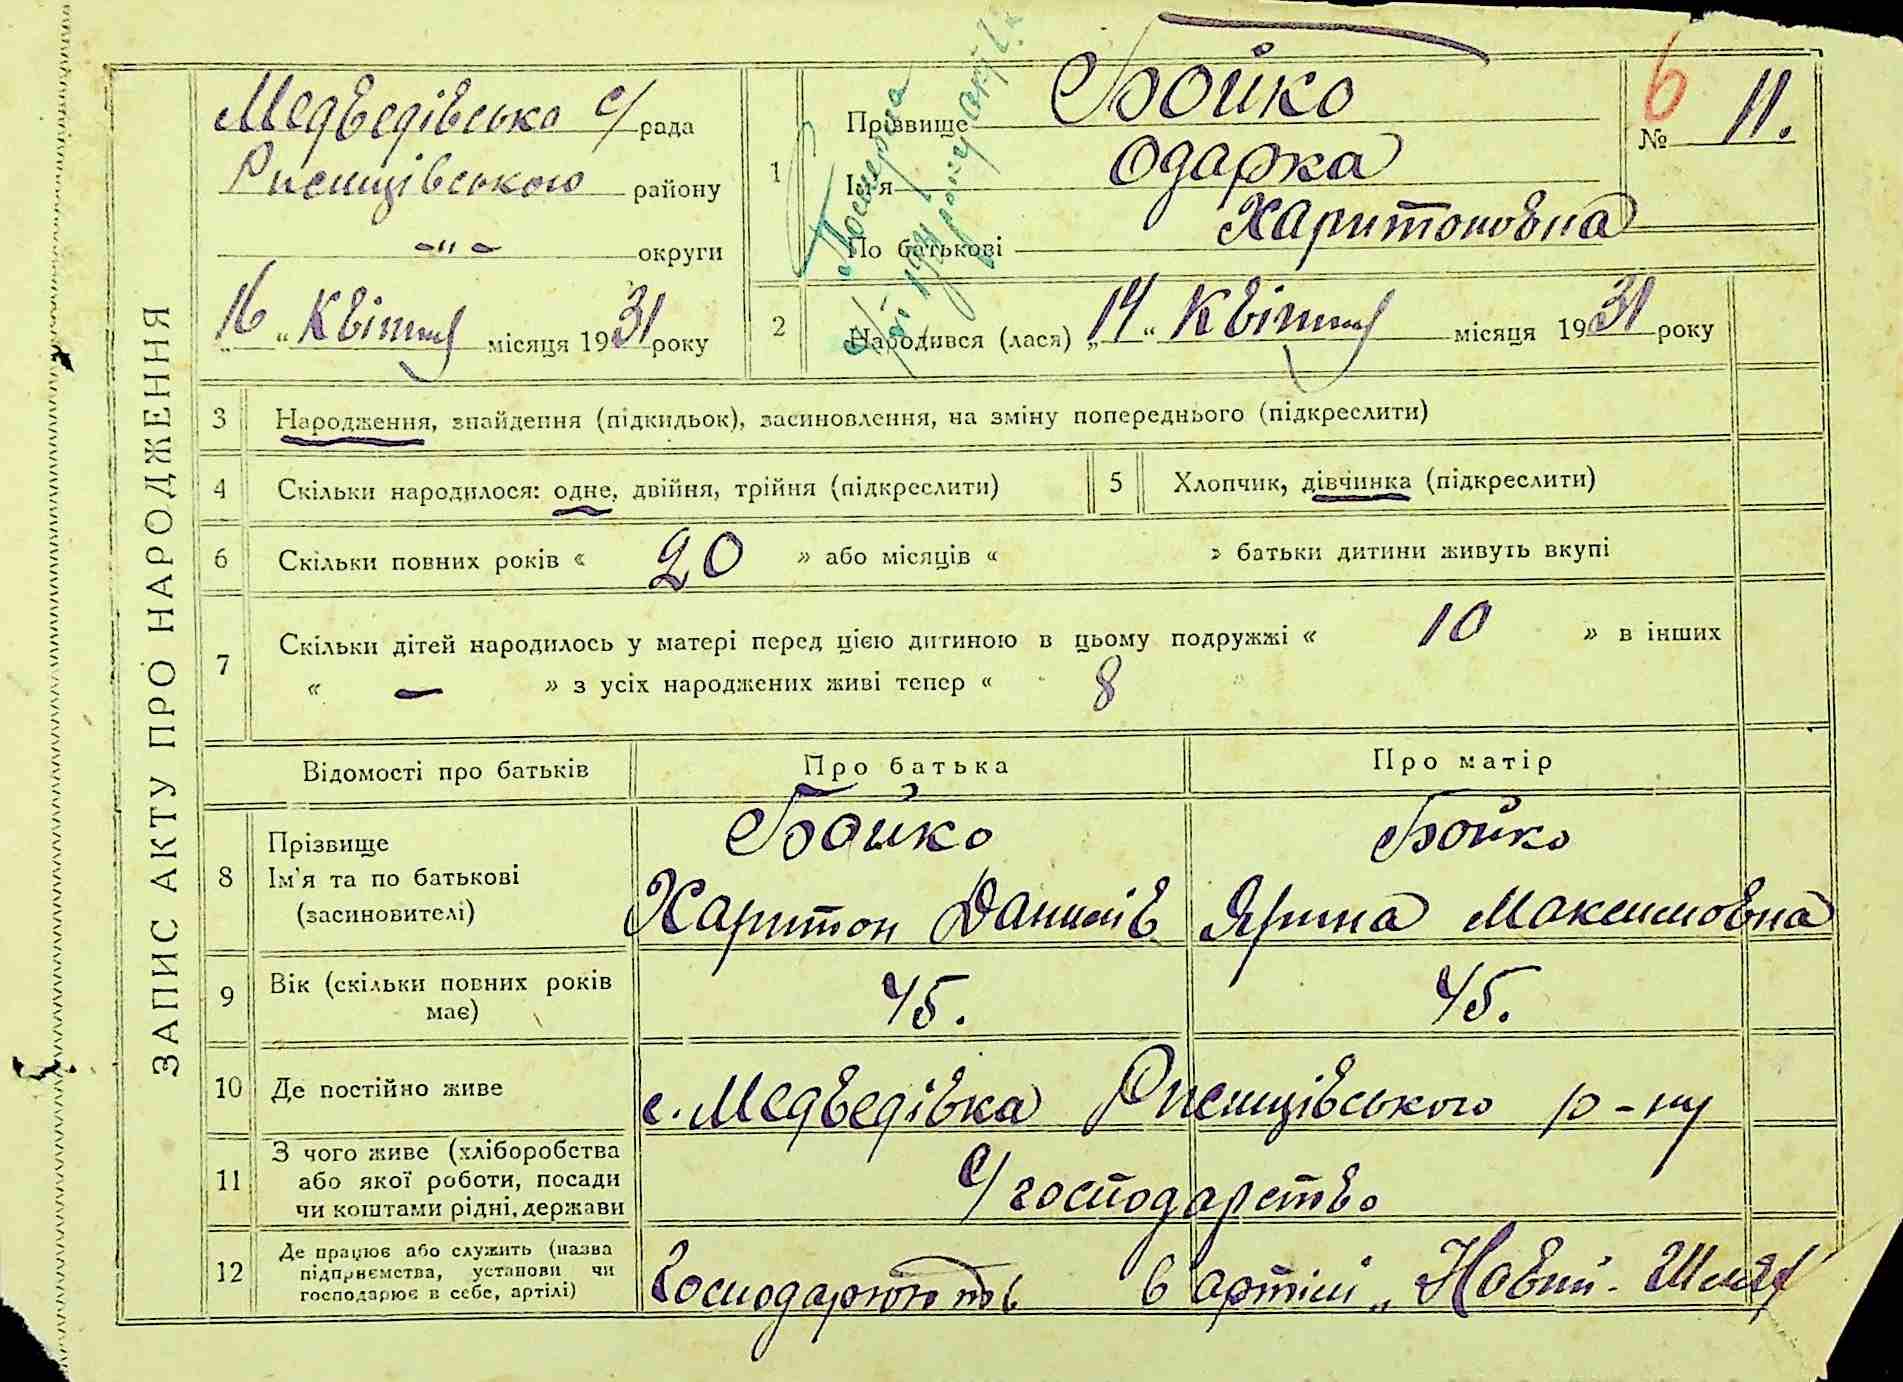 ЗАПИС АКТУ ПРО НАРОДЖЕННЯ
Медведівська с/рада
Рисищівського району
-"- округи
16 " Квітня місяця 1931 року
6
№ 11.
1 Прізвище Бойко
Ім'я Одарка
По батькові Харитоновна
2 Народився (лася) „14 " Квітня місяця 1931 року
3 Народження, знайдення (підкидьок), засиновлення, на зміну попереднього (підкреслити)
4 Скільки народилося: одне, двійня, трійня (підкреслити)
5 Хлопчик, дівчинка (підкреслити)
6 Скільки повних років « 20 » або місяців « » батьки дитини живуть вкупі
7 Скільки дітей народилось у матері перед цією дитиною в цьому подружжі « 10 » в інших
« — » з усіх народжених живі тепер « 8
Відомості про батьків Про батька Про матір
8 Прізвище
Ім'я та по батькові
(засиновителі)
Бойко
Харитон Данилів
Бойко
Ярина Максимовна
9 Вік (скільки повних років
має)
45. 45.
10 Де постійно живе с. Медведівка Рисищівського р-ну
11 З чого живе (хліборобства
або якої роботи, посади
чи коштами рідні, держави
с/господарство
12 Де працює або служить (назва
підприємства, установи чи
господарює в себе, артілі)
Господарюють в артілі „Новий-Шлях